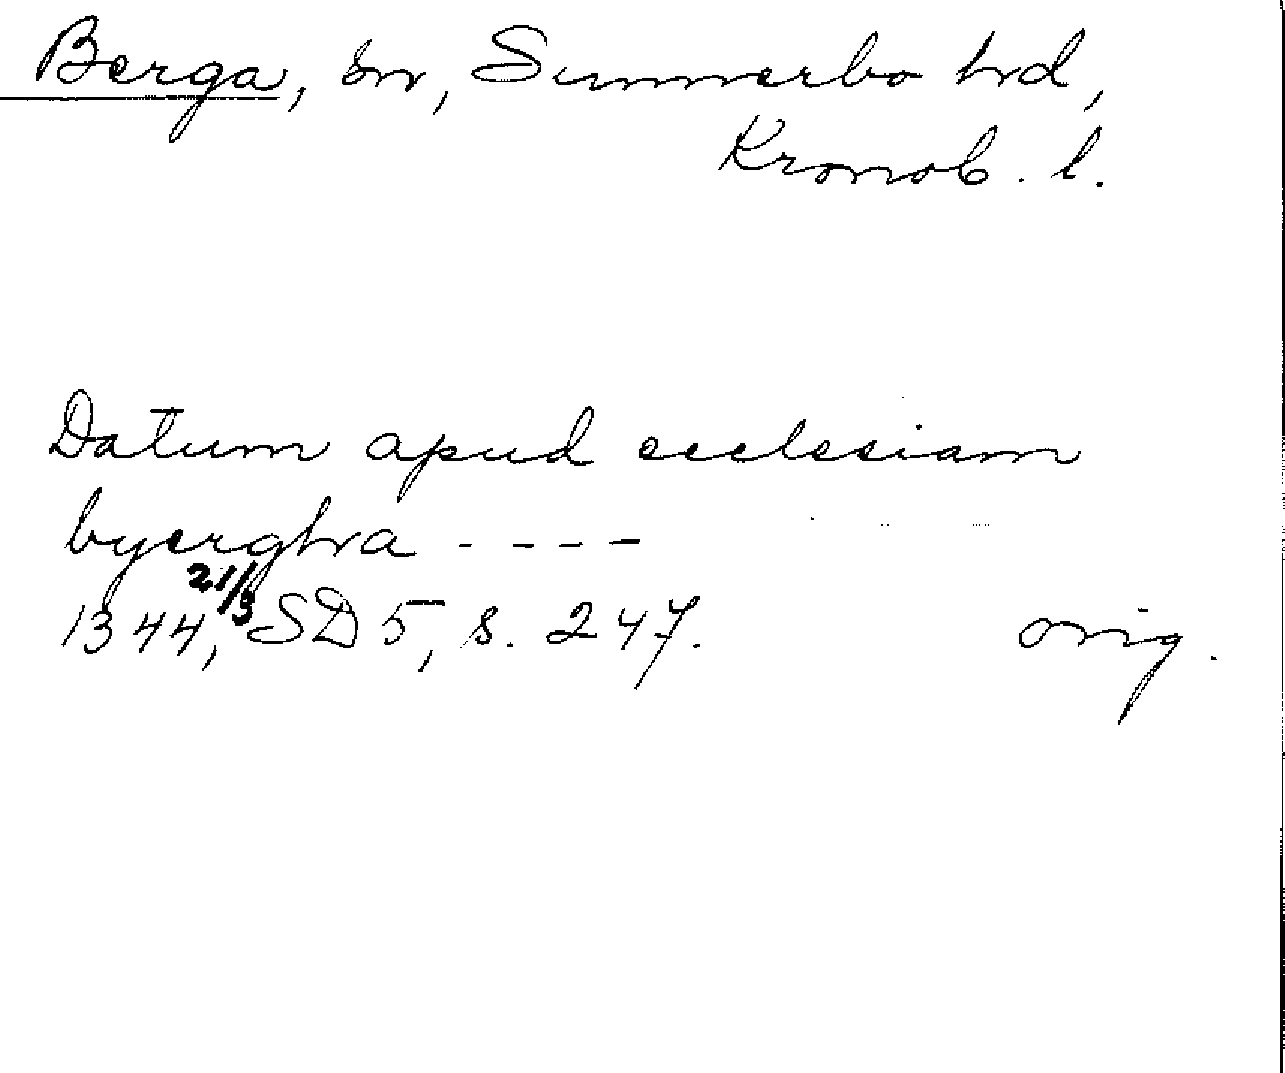 Berga, sn, Sunnerbo hd,
Kronob. l.
Datum apud ecclesiam
byerghra ----
21/3
1344, SD 5, s. 247. orig.